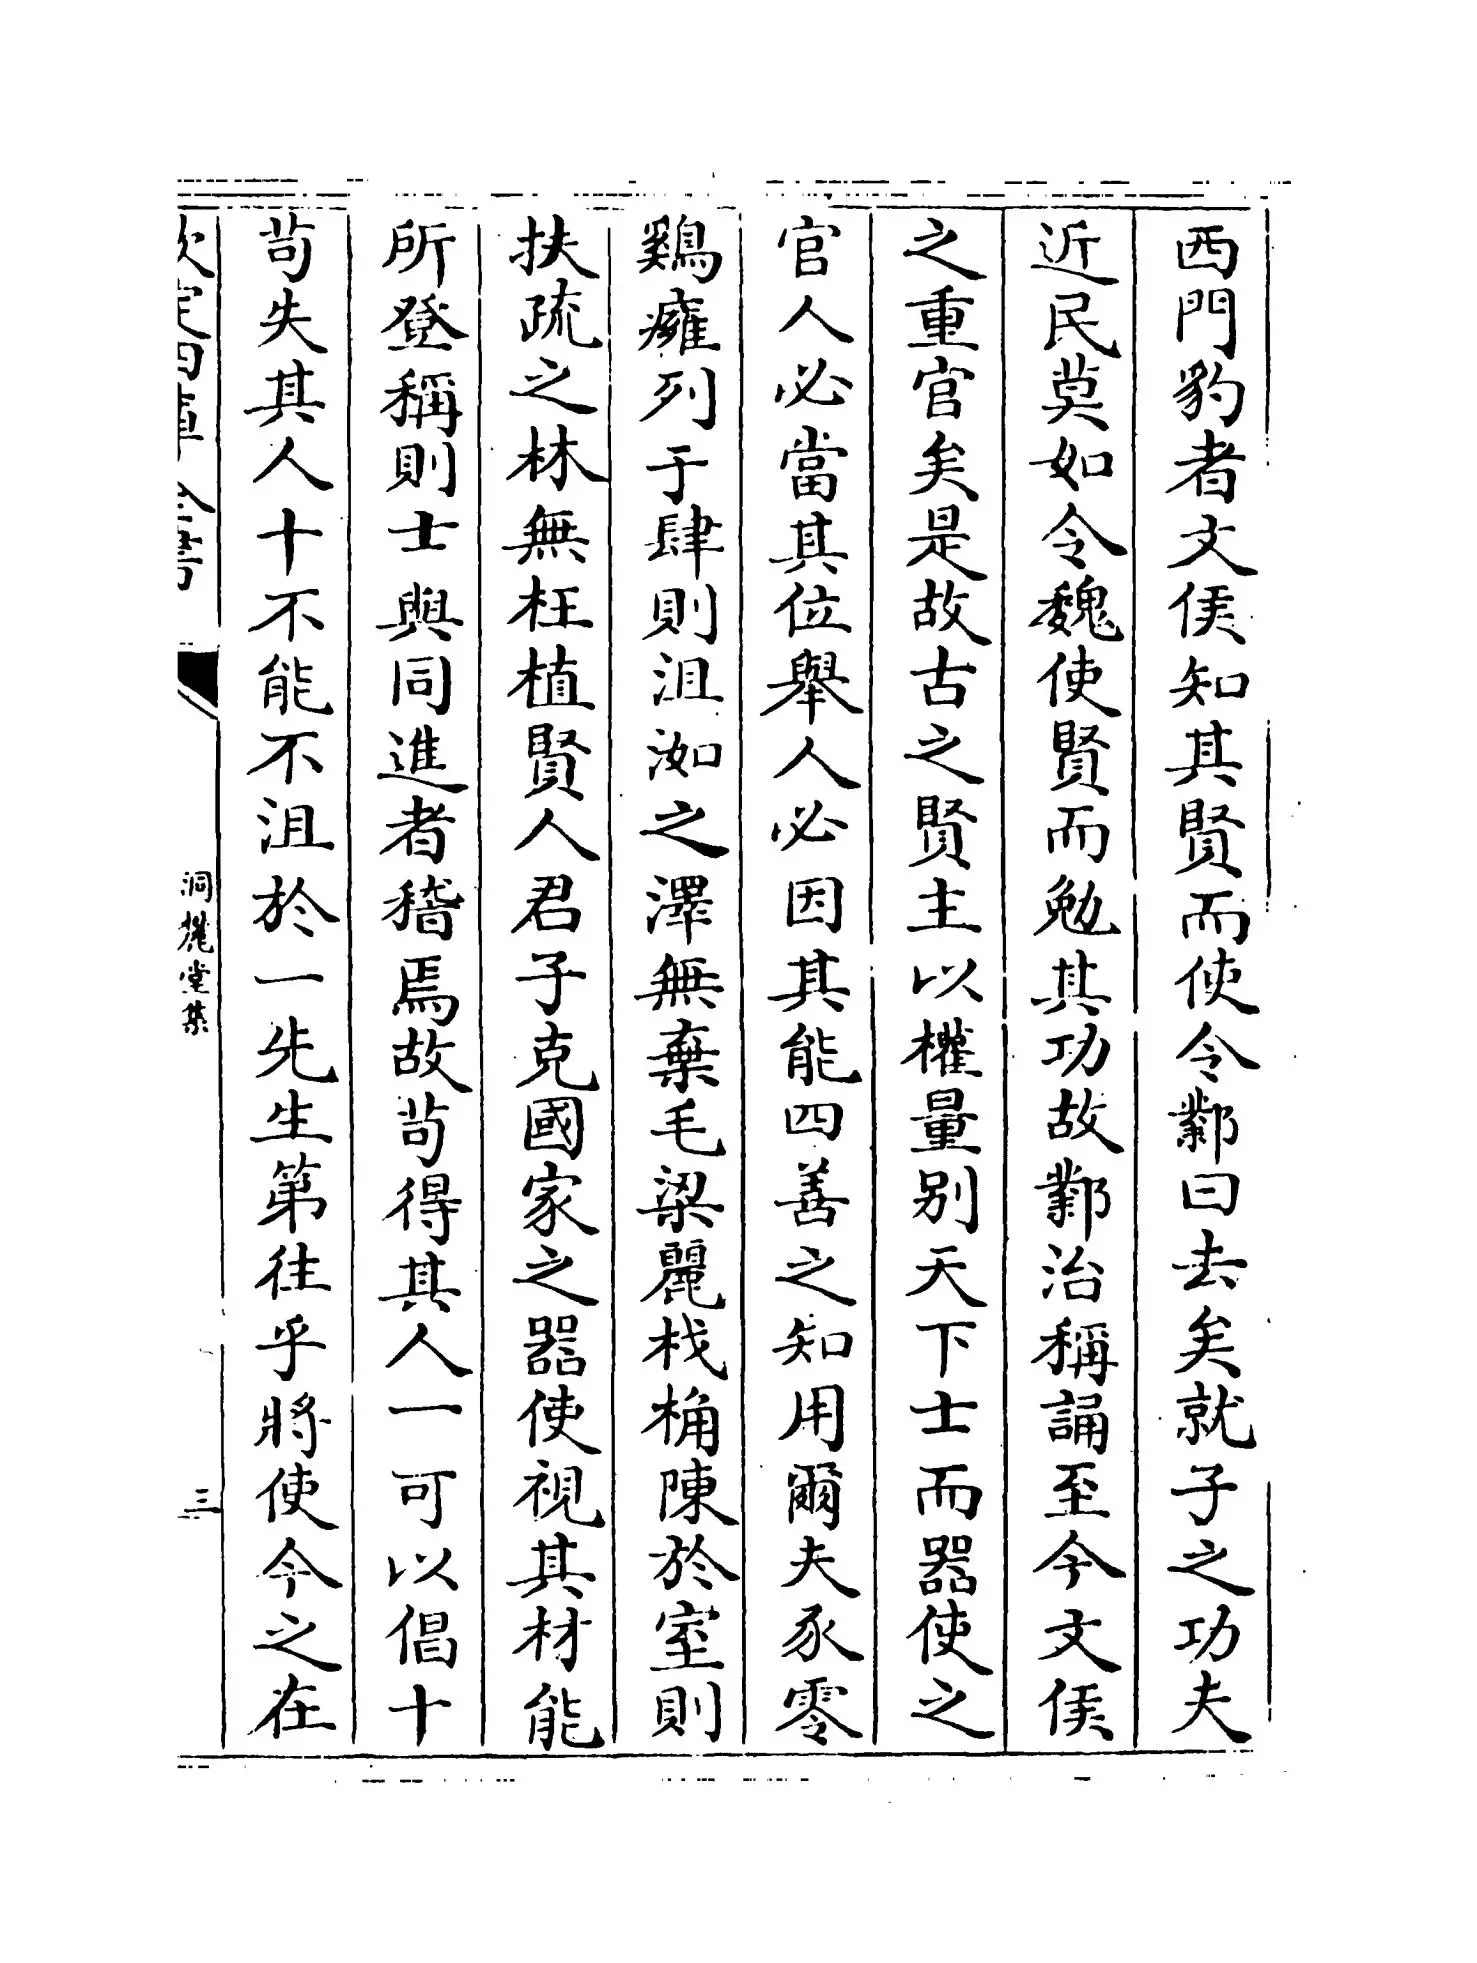 西門豹者文侯知其賢而使令鄴曰去矣就子之功夫
近民莫如令魏使賢而勉其功故鄴治稱誦至今文侯
之重官矣是故古之賢主以權量别天下士而器使之
官人必當其位舉人必因其能四善之知用爾夫豕零
鷄癕列于肆則沮洳之澤無棄毛梁麗栈桷陳於室則
扶疏之林無枉植賢人君子克國家之器使視其材能
所登稱則士與同進者稽焉故苟得其人一可以倡十
苟失其人十不能不沮於一先生第往乎將使今之在
欽定四庫全書
洞麓堂集
三